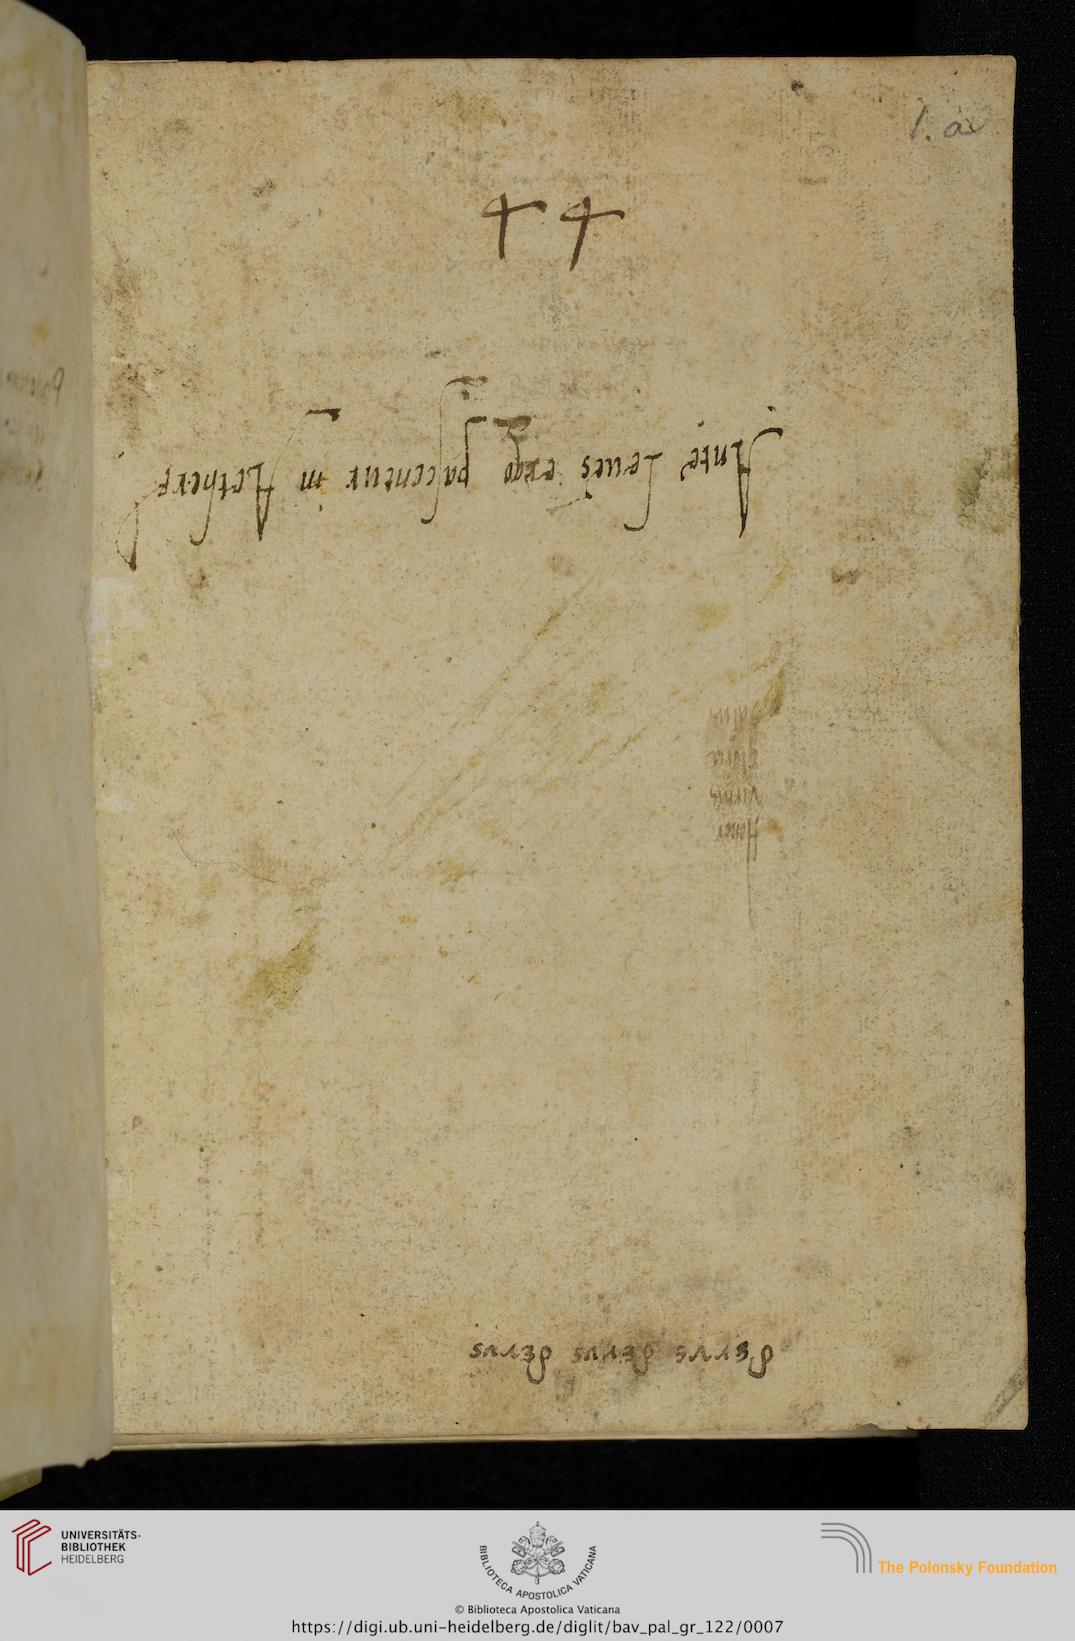 1. a
44
Ante leues ergo pascentur in Aethere
Honor
virtus
gloria
UNIVERSITÄTS-
BIBLIOTHEK
HEIDELBERG
BIBLIOTECA APOSTOLICA VATICANA
The Polonsky Foundation
© Biblioteca Apostolica Vaticana
https://digi.ub.uni-heidelberg.de/diglit/bav_pal_gr_122/0007